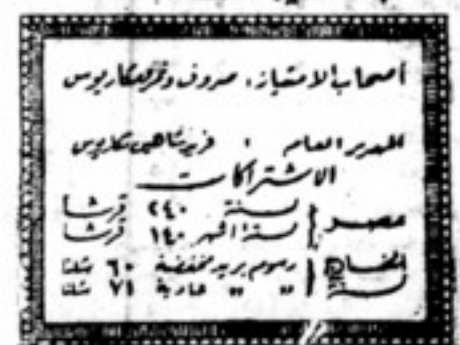 أصحاب الامتياز: صروف ونمر ومكاريوس
المدير العام : فريد شاهين مكاريوس
الاشتراكات
مصر { لسنة ٢٤٠ قرشا
لستة أشهر ١٤٠ قرشا
الخارج لسنة { رسوم بريد مخفضة ٦٠ شلنا
" " عادية ٧١ شلنا